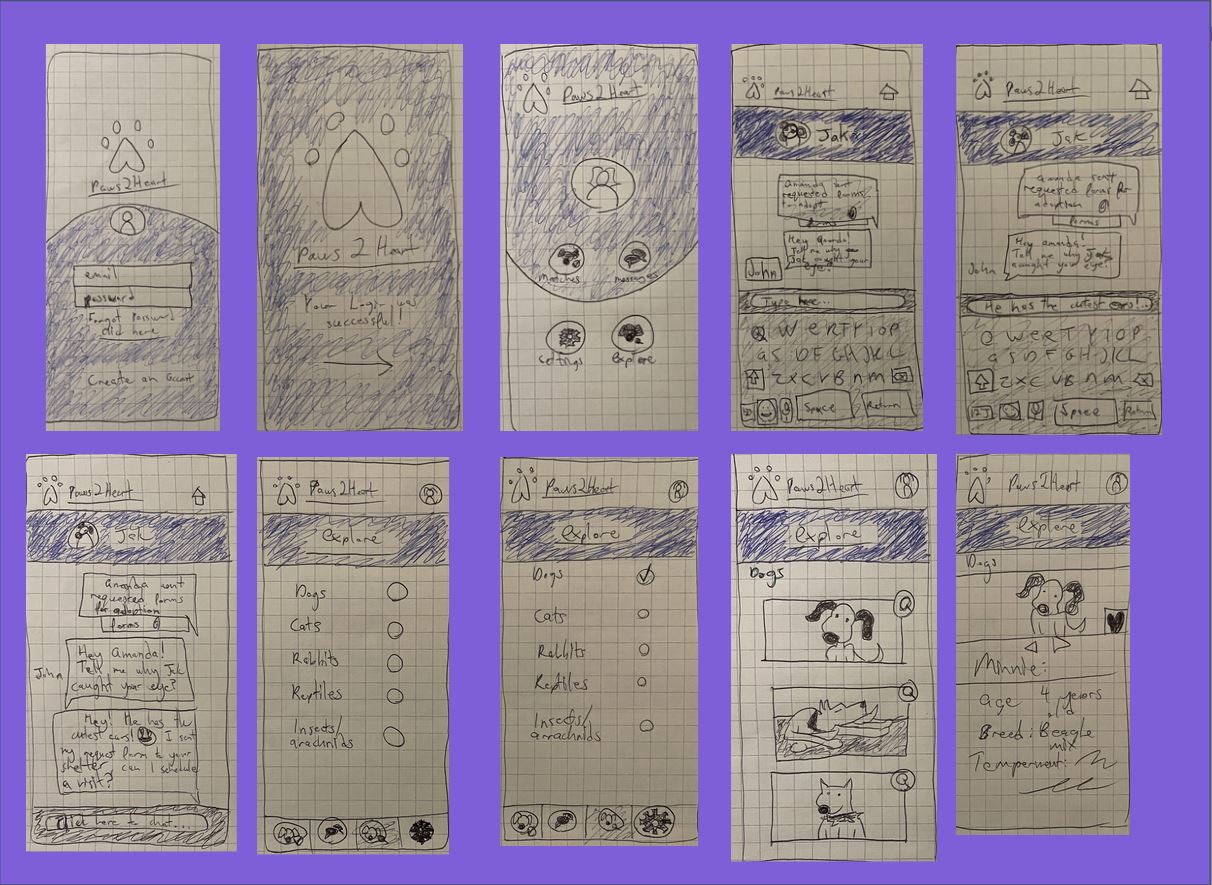 Paws2Heart
email
password
Forgot Password
click here
Create an
Paws 2 Heart
Your Login was
successful!
Paws2Heart
matches
messages
settings
Explore
Paws2Heart
Jake
Amanda sent
requested forms
for adopt
forms
Hey Amanda!
Tell me why
Jak caught your
eye?
John
Type here...
Q W e R T Y I O P
a S D F G H J K L
Z X C V B n m
Space
Return
Paws2Heart
Jak
amanda sent
requested forms for
adoption
forms
Hey amanda!
Tell me why Jak
caught your eye?
John
He has the cutest ears!..
Q W e R T Y I O P
a S D F G H J K L
Z X C V B n m
123
Space
Return
Paws2Heart
Jak
Amanda sent
requested forms
for adoption
forms
Hey Amanda!
Tell me why Jak
caught your eye?
John
Hey! He has the
cutest ears! I sent
my request form to your
shelter can I schedule
a visit?
Click here to chat....
Paws2Heart
explore
Dogs
Cats
Rabbits
Reptiles
Insects/
arachnids
Paws2Heart
Explore
Dogs
Cats
Rabbits
Reptiles
Insects/
arrachnids
Paws2Heart
explore
Dogs
Paws2Heart
explore
Dogs
Minnie:
age 4 years
old
Breed: Beagle
mix
Temperment: